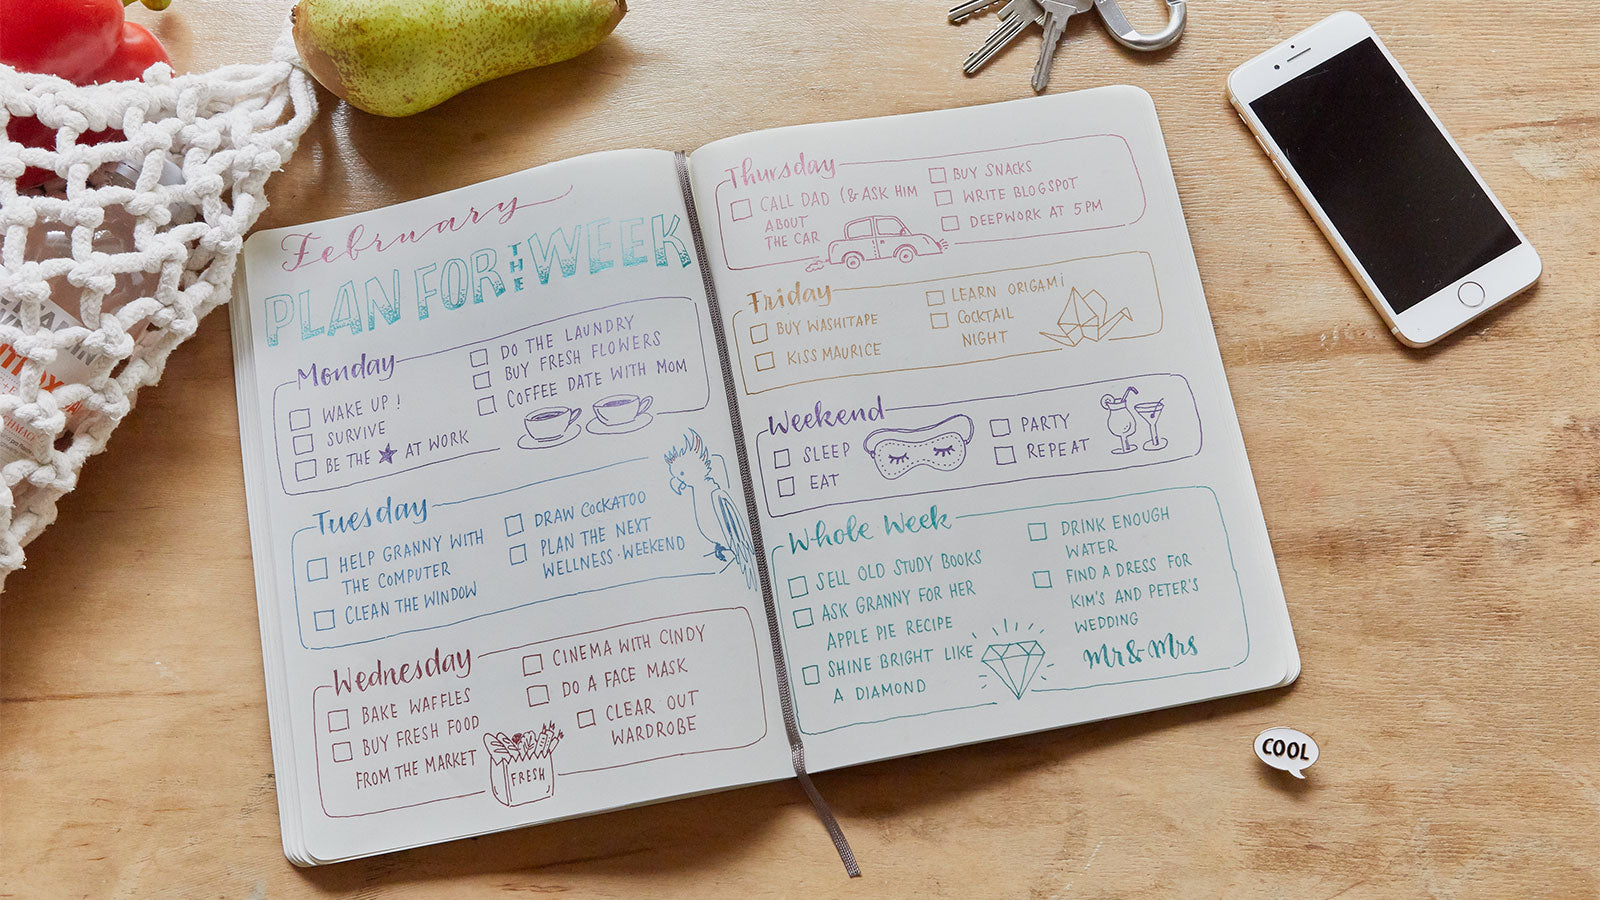 February
PLAN FOR THE WEEK
Monday
WAKE UP !
SURVIVE
BE THE ★ AT WORK
DO THE LAUNDRY
BUY FRESH FLOWERS
COFFEE DATE WITH MOM
Tuesday
HELP GRANNY WITH
THE COMPUTER
CLEAN THE WINDOW
DRAW COCKATOO
PLAN THE NEXT
WELLNESS-WEEKEND
Wednesday
BAKE WAFFLES
BUY FRESH FOOD
FROM THE MARKET
FRESH
CINEMA WITH CINDY
DO A FACE MASK
CLEAR OUT
WARDROBE
Thursday
CALL DAD (& ASK HIM
ABOUT
THE CAR
BUY SNACKS
WRITE BLOGSPOT
DEEPWORK AT 5 PM
Friday
BUY WASHITAPE
KISS MAURICE
LEARN ORIGAMI
COCKTAIL
NIGHT
Weekend
SLEEP
EAT
PARTY
REPEAT
Whole Week
SELL OLD STUDY BOOKS
ASK GRANNY FOR HER
APPLE PIE RECIPE
SHINE BRIGHT LIKE
A DIAMOND
DRINK ENOUGH
WATER
FIND A DRESS FOR
KIM'S AND PETER'S
WEDDING
Mr & Mrs
COOL